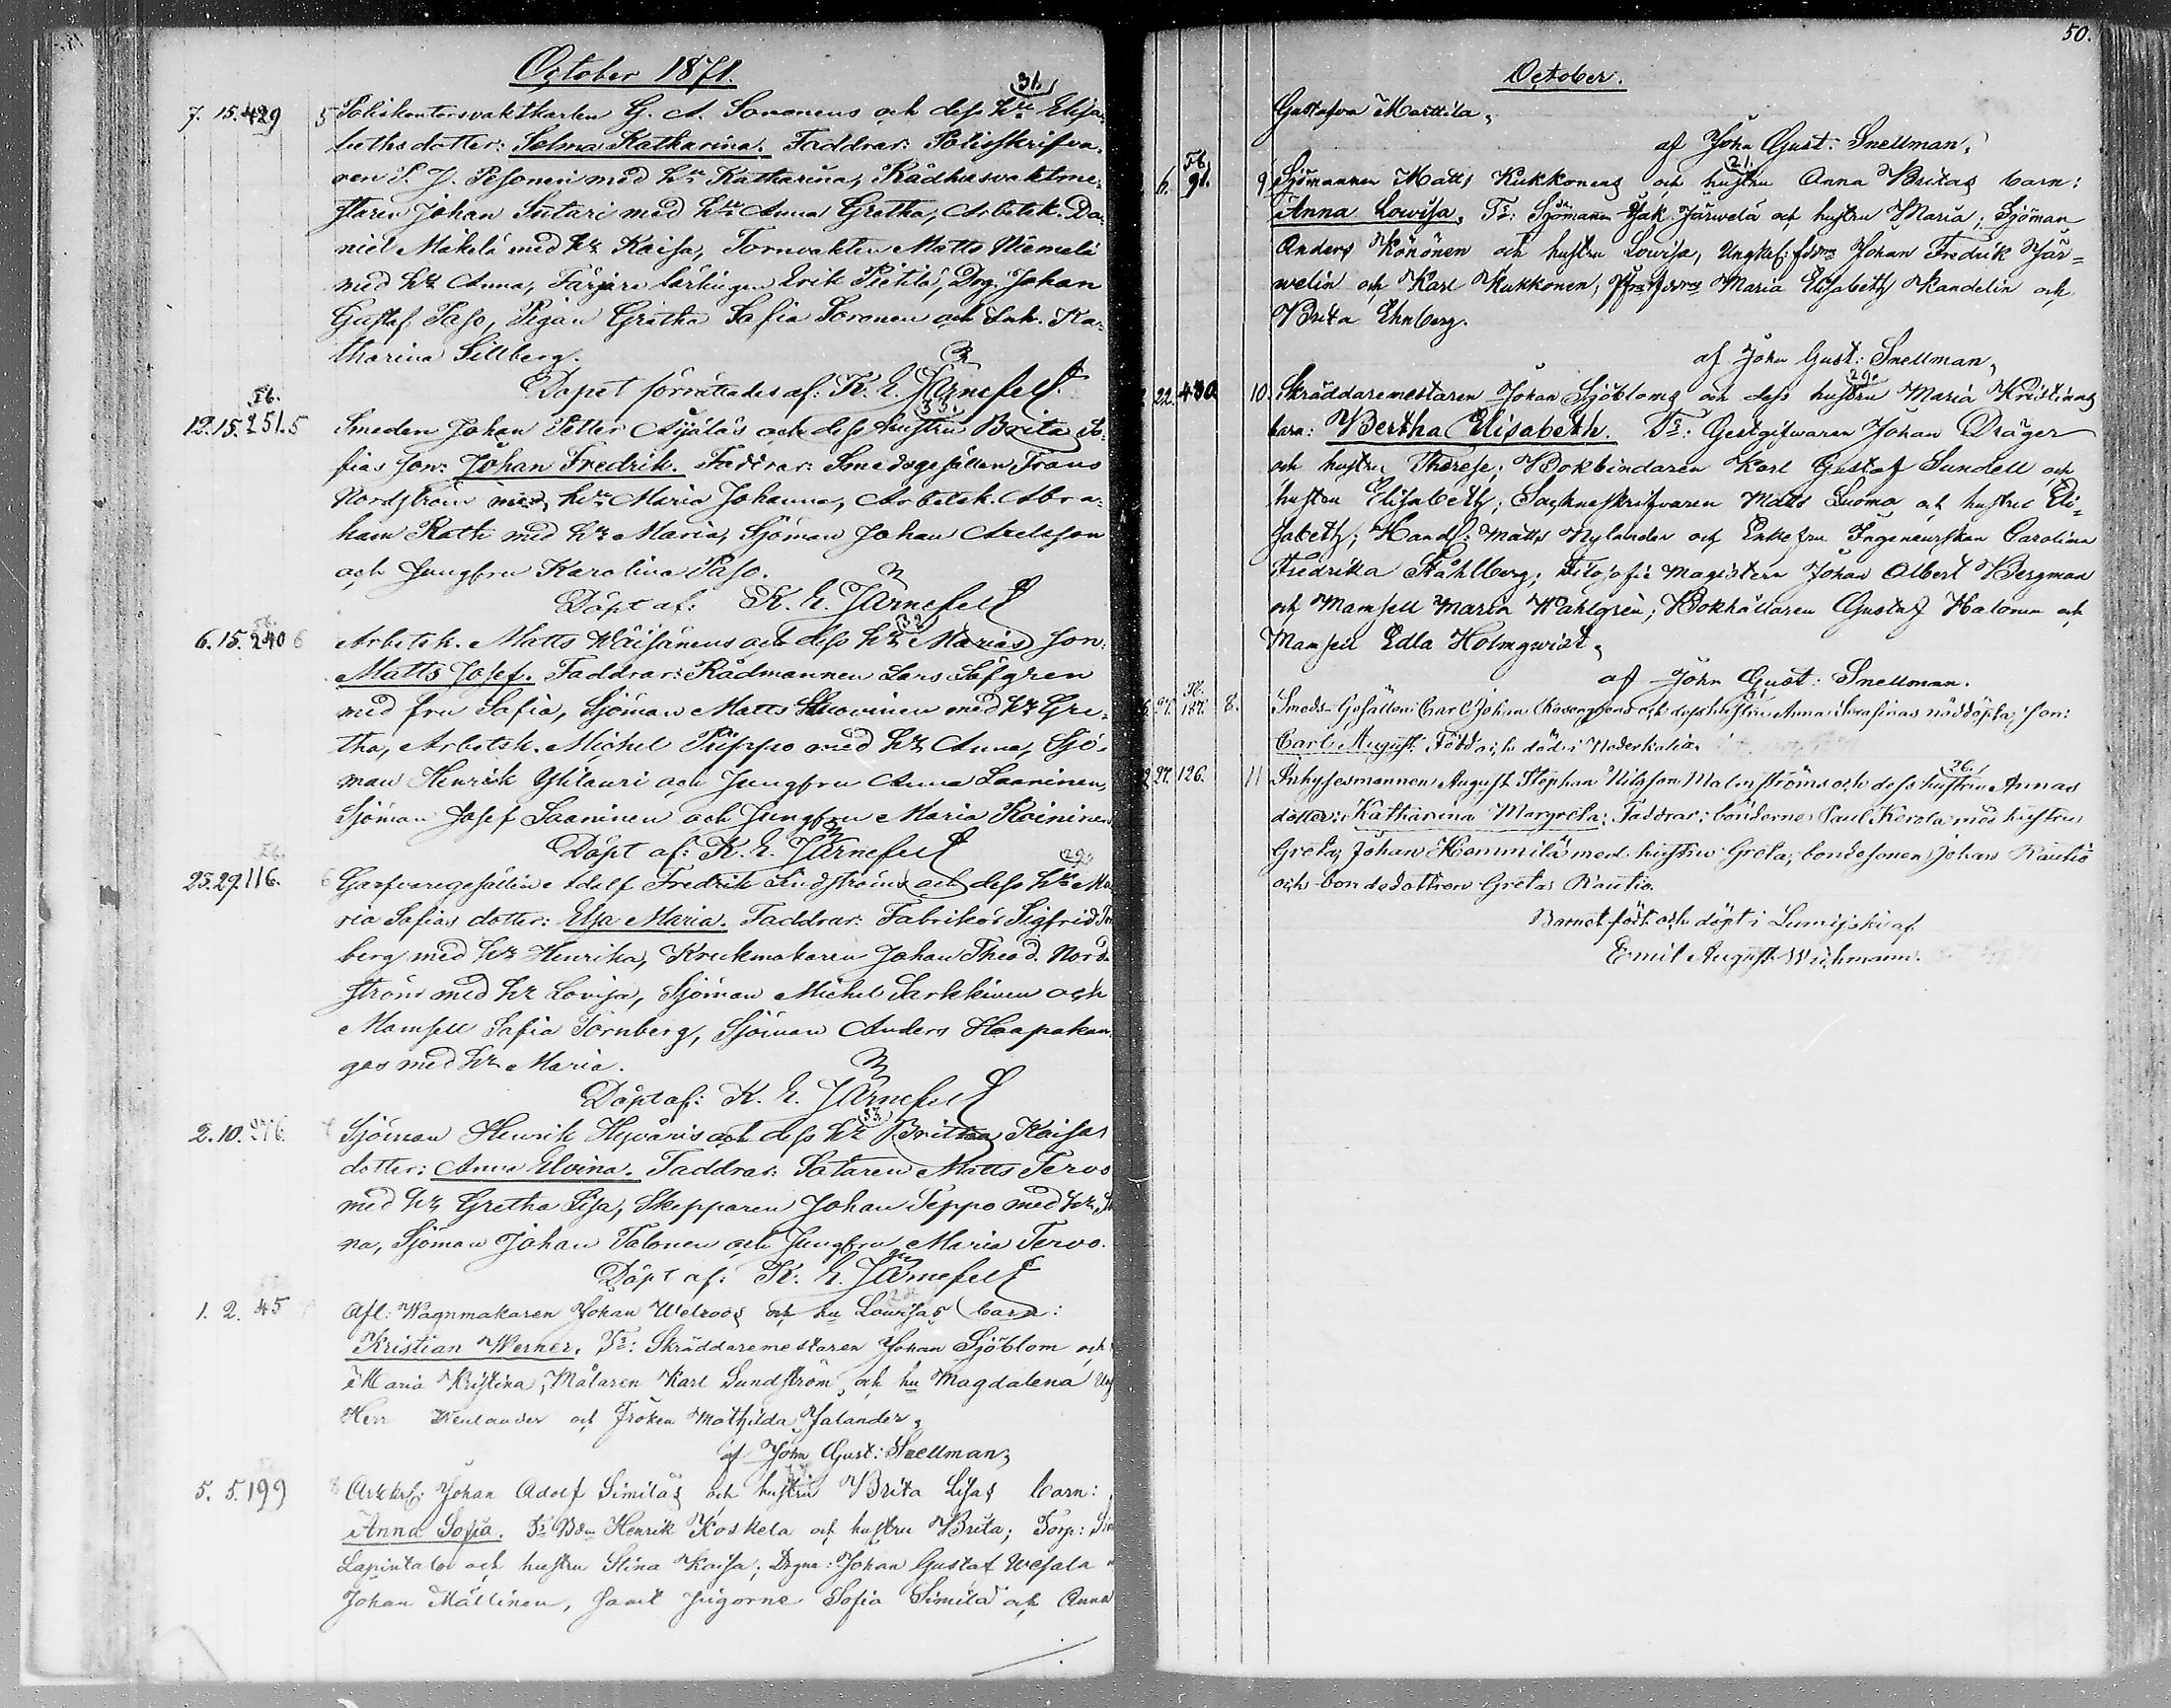 October 1871.
31.
7. 15. 429 5 Poliskontorsvaktkarlen G. A. Soronens och dess hu Elisa-
beths dotter: Selma Katharina. Faddrar: Polisskrifva-
ren P. J. Pesonen med hu Katharina, Rådhusvaktme-
staren Johan Sutari med hu Anna Gretha, Arbetsk. Da-
niel Mäkelä med hu Kaisa, Tornvakten Matts Niemelä
med hu Anna, Färjare lärlingen Erik Pietilä, Drg. Johan
Gustaf Paso, Pigan Gretha Sofia Soronen och Enk. Ka-
tharina Sillberg.
Dopet förrättades af: K. E. Järnefelt
Tb. 33.
12. 15. 251. 5 Smeden Johan Petter Ajjäläs och dess hustru Brita So-
fias son: Johan Fredrik. Faddrar: Smedsgesällen Frans
Nordström med hu Maria Johanna, Arbetsk. Abra-
ham Rath med hu Maria, Sjöman Johan Axelsson
och Jungfru Karolina Paso.
Döpt af: K. E. Järnefelt
32
6. 15. 240 6 Arbetsk. Matts Wäisänens och dess hu Marias son:
Matts Josef. Faddrar: Rådmannen Lars Löfgren
med fru Sofia, Sjöman Matts Skuovinen med hu Gre-
tha, Arbetsk. Michel Piippo med hu Anna, Sjö-
man Henrik Ylilauri och Jungfru Anna Laaninen,
Sjöman Josef Laaninen och Jungfru Maria Koininen
Döpt af: K. E. Järnefelt
29.
25. 29. 116. 6 Garfvaregesällen Adolf Fredrik Lindströms och dess hu Ma-
ria Sofias dotter: Elsa Maria. Faddrar: Fabrikör Sigfrid
berg med hu Henrika, Krukmakaren Johan Theod. Nord-
ström med hu Lovisa, Sjöman Michel Sarkkinen och
Mamsell Sofia Törnberg, Sjöman Anders Haapakan-
gas med hu Maria.
Döpt af: K. E. Järnefelt
33.
2. 10. 276. Sjöman Henrik Hyväris och dess hu Britta Kaisas
dotter: Anna Elvina. Faddrar: Lotaren Matts Tervo
med hu Gretha Lisa, Skepparen Johan Seppo med hu
na, Sjöman Johan Talonen och Jungfru Maria Tervo.
Döpt af: K. E. Järnefelt
1. 2. 45 Afl. Wagnmakaren Johan Welroos och hu Lowisas barn:
Kristian Werner. Fr: Skräddaremestaren Johan Sjöblom och
Maria Kristina; Målaren Karl Sundström och hu Magdalena
Herr Wenlander och Fröken Mathilda Jalander,
af Joh: Gust: Snellman,
5. 5. 199 Arbkrl: Johan Adolf Similäs och hustru Brita Lisas barn:
Anna Sofia. Fr: Bdn Henrik Koskela och hustru Brita; Torp:
Lapintalo och hustru Stina Kaisa; Drgne: Johan Gustaf Wesala
Johan Mällinen, samt Pigorne Sofia Similä och Anna
50.
October.
Gustafva Marttila,
af Joh: Gust: Snellman,
Tb. 21.
6. 91. 9 Sjömannen Matts Kukkonens och hustru Anna Britas barn:
Anna Lowisa, Fr: Sjömannen Isak Järwelä och hustru Maria; Sjöman
Anders Könönen och hustru Lowisa, Ungkrl: Johan Fredrik Jär-
welin och Karl Kukkonen, Maria Elisabeth Kandelin och
Brita Ehnberg.
af Joh: Gust: Snellman,
29.
22. 430. 10. Skräddaremestaren Johan Sjöbloms och dess hustru Maria Kristinas
barn: Bertha Elisabeth. Fr: Gestgifwaren Johan Dräger
och hustru Therese; Bokbindaren Karl Gustaf Sundell och
hustru Elisabeth; Socknskrifvaren Matts Luoma och hustru Eli-
sabeth; Handl: Matts Nylander och Enkefru Ingenieurskan Carolina
Fredrika Ståhlberg; Filosofie Magistern Johan Albert Bergman
och Mamsell Maria Wahlgrén; Bokhållaren Gustaf Halonen och
Mamsell Edla Holmqwist,
af Joh: Gust: Snellman.
27. 187. 8. Smeds-Gesällen Carl Johan Rosengrens och dess hustru Anna Serafinas nöddöpta son:
Carl August. Född och död i Nederkalix.
26.
27. 126. 11 Inhysesmannen August Stephan Nilsson Malmströms och dess hustru Annas
dotter: Katharina Margreta: Faddrar: bönderne Paul Kerola med hustru
Greta, Johan Kemmilä med hustru Greta, bondesonen Johan Rautio
och bondedottren Greta Rautio.
Barnet född och döpt i Lumijoki af
Emil August Wichmann.